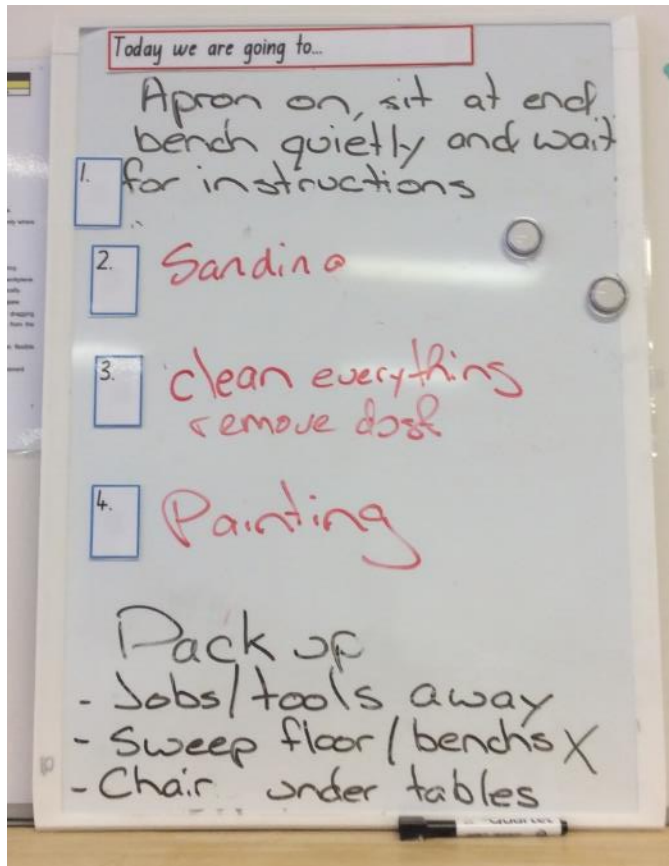 Today we are going to...
Apron on, sit at end
bench quietly and wait
1. for instructions
2. Sanding
3. clean everything
remove dust
4. Painting
Pack up
- Jobs/tools away
- Sweep floor/benchs X
- Chair under tables
Quartet